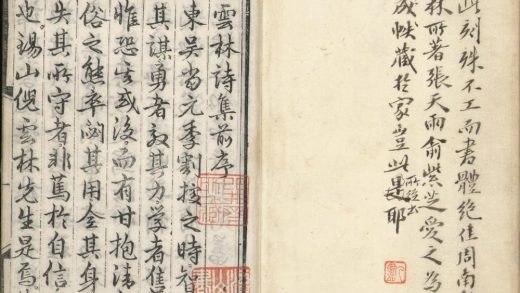 此刻殊不工而書體絕佳周南
林所著張天雨俞紫芝愛之為
成帙藏於家豈此耶
雲林詩集前序
東吳當元季割據之時智
其謀勇者效其力學者售
睢恐或後而有甘抱清
俗之態卒閟其用全其身
失其所守者非篤於自信
也湯山倪雲林先生是焉